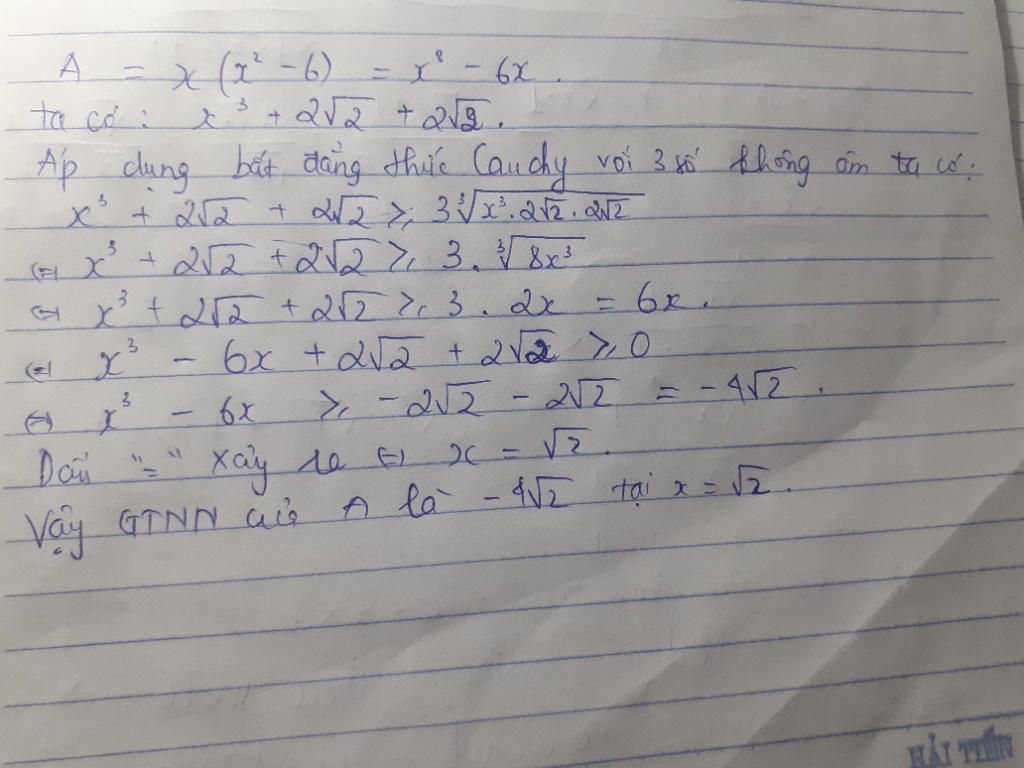 A = x(x² - 6) = x³ - 6x.
ta có: x³ + 2√2 + 2√2.
Áp dụng bất đẳng thức Cauchy với 3 số không âm ta có:
x³ + 2√2 + 2√2 ≥ 3∛(x³.2√2.2√2)
⇔ x³ + 2√2 + 2√2 ≥ 3.∛(8x³)
⇔ x³ + 2√2 + 2√2 ≥ 3.2x = 6x.
⇔ x³ - 6x + 2√2 + 2√2 ≥ 0
⇔ x³ - 6x ≥ -2√2 - 2√2 = -4√2.
Dấu "=" xảy ra ⇔ x = √2.
Vậy GTNN của A là -4√2 tại x = √2.
HẢI TIẾN